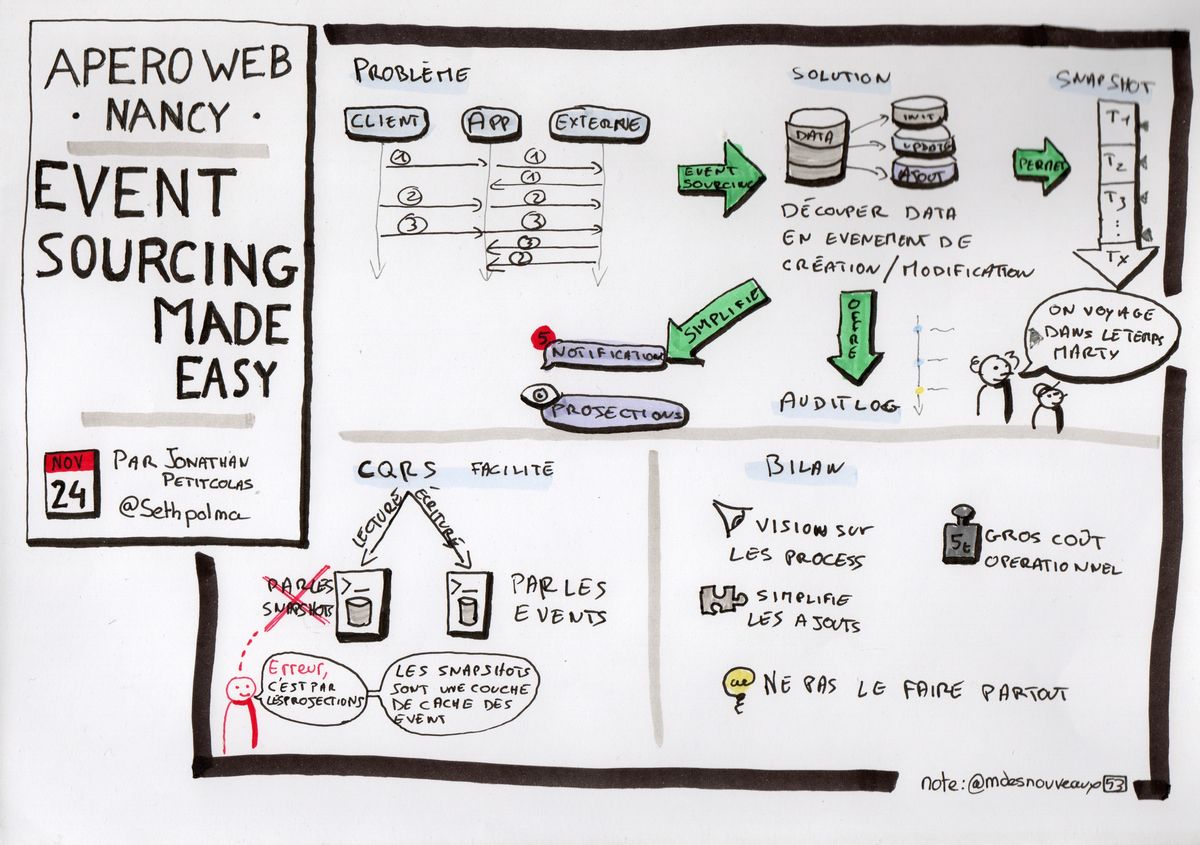 APERO WEB
· NANCY ·
EVENT
SOURCING
MADE
EASY
NOV
24
PAR JONATHAN
PETITCOLAS
@Sethpolma
PROBLÈME
CLIENT
APP
EXTERNE
1
1
1
2
2
3
3
3
2
EVENT
SOURCING
SOLUTION
DATA
INIT
UPDATE
AJOUT
DÉCOUPER DATA
EN EVENEMENT DE
CRÉATION/MODIFICATION
PERMET
SNAPSHOT
T1
T2
T3
...
TX
ON VOYAGE
DANS LE TEMPS
MARTY
SIMPLIFIE
5
NOTIFICATION
PROJECTIONS
OFFRE
AUDIT LOG
CQRS FACILITÉ
LECTURE
ÉCRITURE
PAR LES
SNAPSHOTS
>_
>_
PAR LES
EVENTS
Erreur,
C'EST PAR
LES PROJECTIONS
LES SNAPSHOTS
SONT UNE COUCHE
DE CACHE DES
EVENT
BILAN
VISION SUR
LES PROCESS
SIMPLIFIE
LES AJOUTS
5t
GROS COÛT
OPERATIONNEL
NE PAS LE FAIRE PARTOUT
note: @mdesnouveaux 53